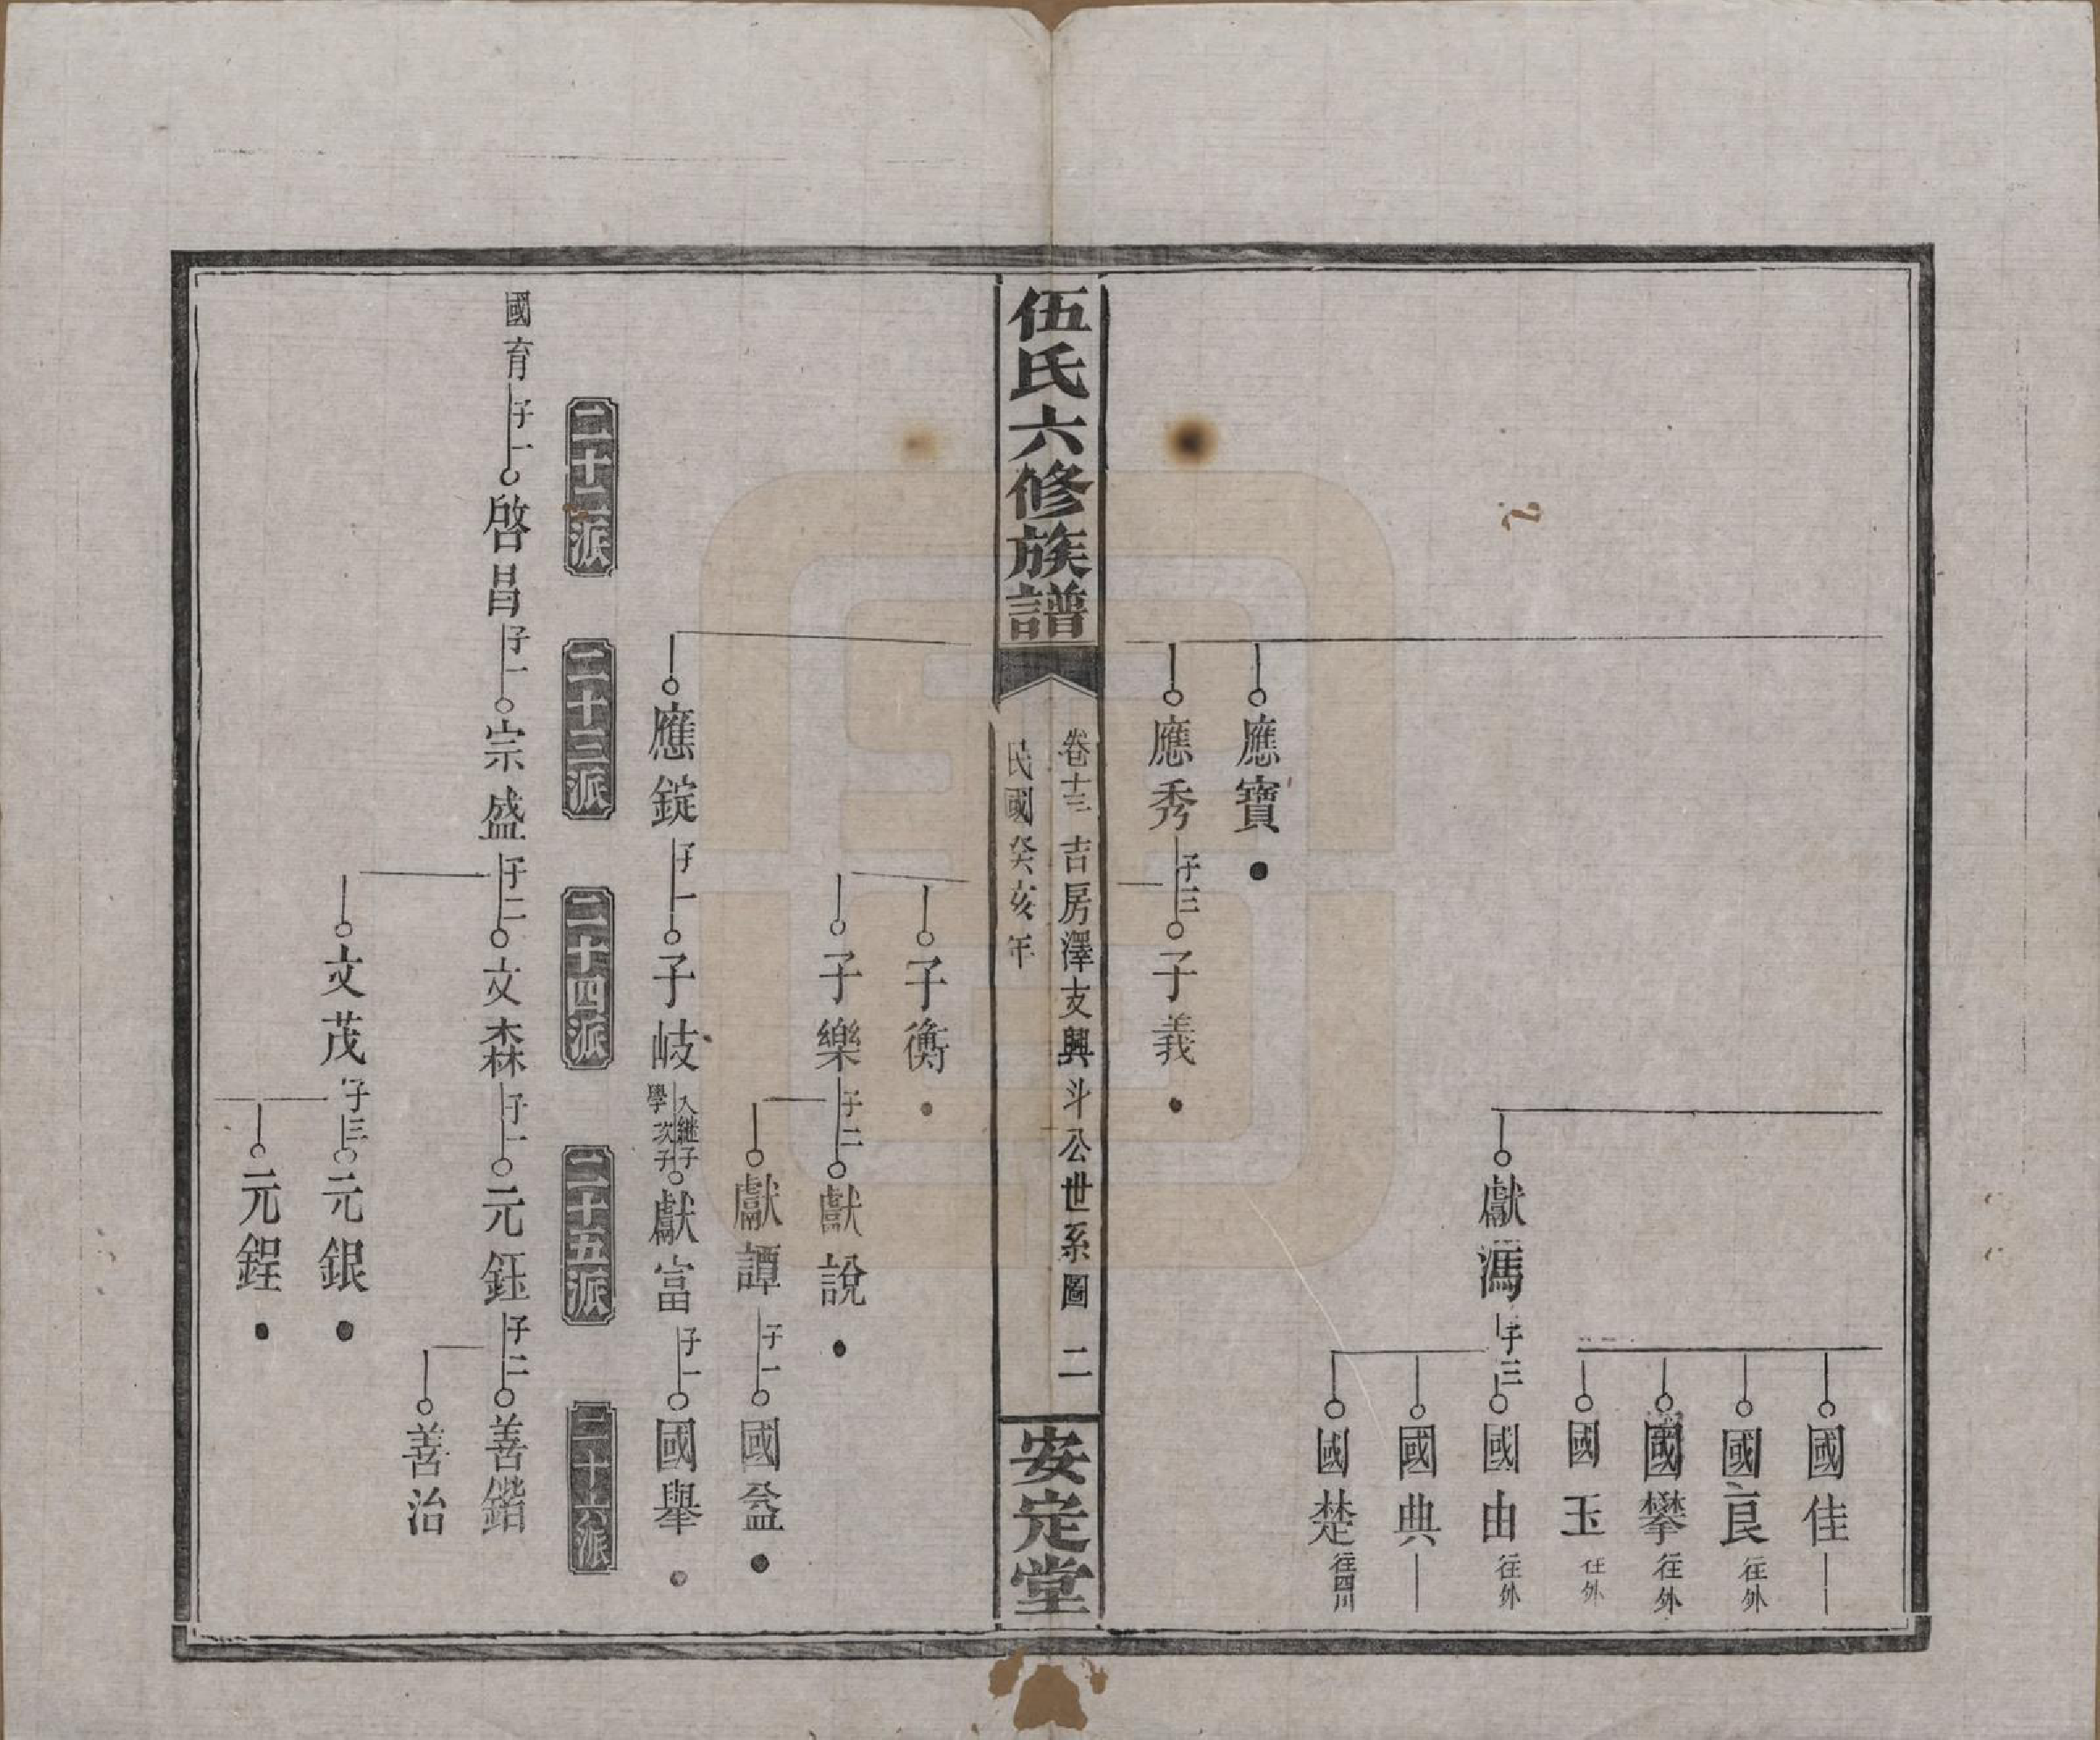 國佳
國良 往外
國攀 往外
國玉 往外
獻潙 子三 國由 往外
國典
國楚 往四川
應寶
應秀 子三 子義
伍氏六修族譜
卷十三 吉房澤支興斗公世系圖 二
民國癸亥年
安定堂
子衡
子樂 子二 獻說
獻譚 子一 國益
應錠 子一 子岐 入繼子學次子 獻富 子一 國舉
二十二派 二十三派 二十四派 二十五派 二十六派
國育 子一 啓昌 子一 宗盛 子二 文森 子一 元鈺 子二 善鍇
善治
文茂 子三 元銀
元鋥